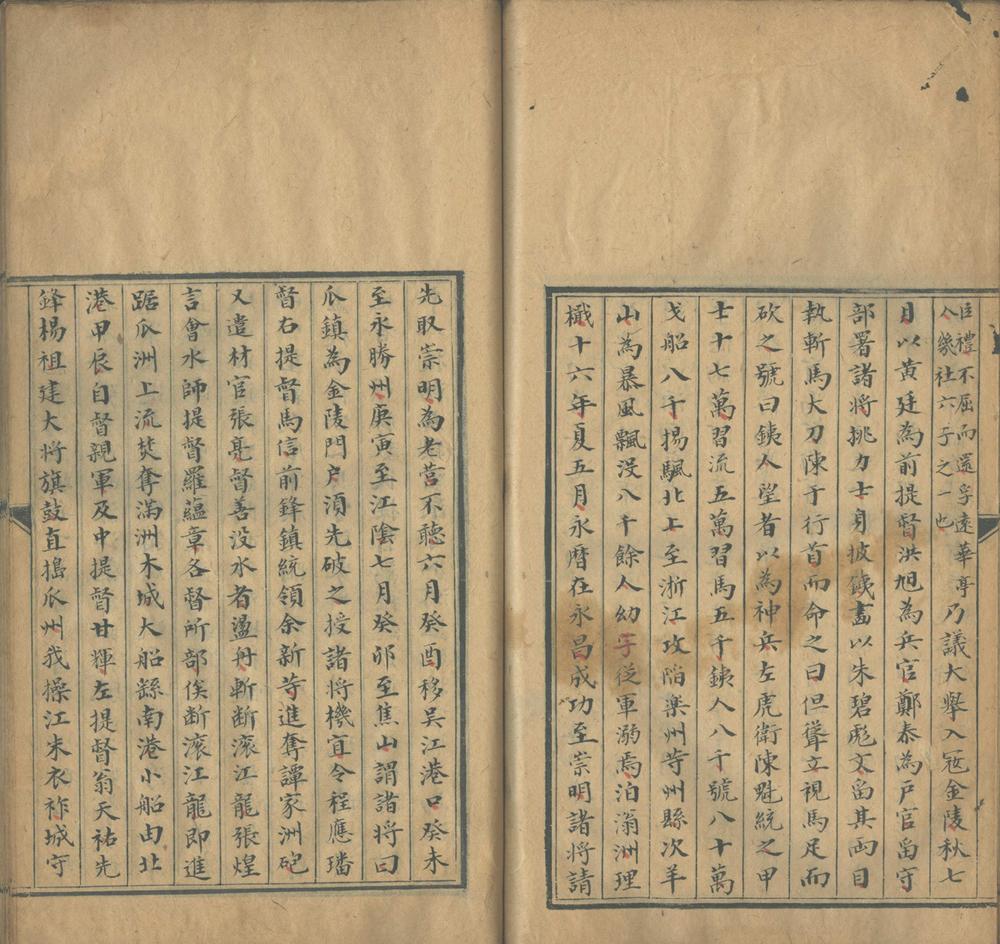 臣禮不屈而還孚遠華亭
人幾社六子之一也
乃議大舉入宼金陵秋七
月以黃廷為前提督洪旭為兵官鄭泰為戶官畱守
部署諸將挑力士身披鐵畫以朱碧彪文畱其両目
執斬馬大刀陳于行首而命之曰但聳立視馬足而
砍之號曰鉄人望者以為神兵左虎衛陳魁統之甲
士十七萬習流五萬習馬五千鉄人八千號八十萬
戈船八千揚颿北上至浙江攻陷樂州䓁州縣次羊
山為暴風飄没八千餘人幼子従軍溺焉泊滃洲理
檝十六年夏五月永曆在永昌成功至崇明諸將請
先取崇明為老营不聽六月癸酉移吴江港口癸未
至永勝州庚寅至江陰七月癸卯至焦山謂諸將曰
瓜鎮為金陵門户湏先破之授諸將機宜令程應璠
督右提督馬信前鋒鎮統領余新䓁進奪譚家洲砲
又遣材官張亮督善没水者盪舟斬断滚江龍張煌
言會水師提督羅蘊章各督所部俟断滚江龍即進
踞瓜洲上流焚奪滿洲木城大船繇南港小船由北
港甲辰自督親軍及中提督甘輝左提督翁天祐先
鋒楊祖建大将旗鼓直搗瓜州我操江朱衣祚城守